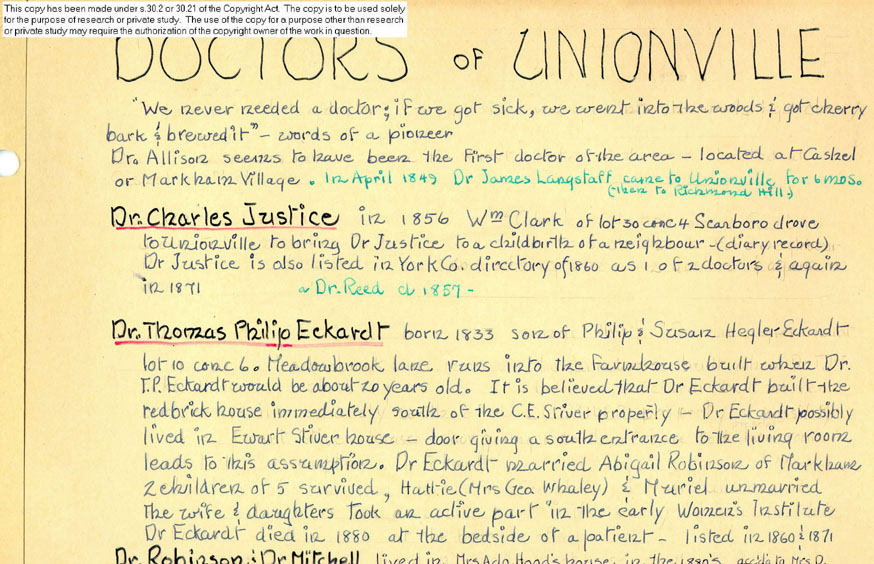 This copy has been made under s.30.2 or 30.21 of the Copyright Act. The copy is to be used solely
for the purpose of research or private study. The use of the copy for a purpose other than research
or private study may require the authorization of the copyright owner of the work in question.
DOCTORS OF UNIONVILLE
"We never needed a doctor; if we got sick, we went into the woods & got cherry
bark & brewed it" - words of a pioneer
Dr. Allison seems to have been the first doctor of the area - located at Cashel
or Markham Village. In April 1849 Dr James Langstaff came to Unionville for 6 mos.
(then to Richmond Hill.)
Dr. Charles Justice in 1856 Wm Clark of lot 30 conc 4 Scarboro drove
to Unionville to bring Dr Justice to a childbirth of a neighbour - (diary record)
Dr Justice is also listed in York Co. directory of 1860 as 1 of 2 doctors & again
in 1871 a Dr. Reed d 1857 -
Dr. Thomas Philip Eckardt born 1833 son of Philip & Susan Hegler-Eckardt
lot 10 conc 6. Meadowbrook lane runs into the farmhouse built when Dr.
T.P. Eckardt would be about 20 years old. It is believed that Dr Eckardt built the
redbrick house immediately south of the C.E. Stiver property - Dr Eckardt possibly
lived in Ewart Stiver house - door giving a south entrance to the living room
leads to this assumption. Dr Eckardt married Abigail Robinson of Markham
2 children of 5 survived, Hattie (Mrs Geo Whaley) & Muriel unmarried
the wife & daughters took an active part in the early Women's Institute
Dr Eckardt died in 1880 at the bedside of a patient - listed in 1860 & 1871
Dr. Robinson & Dr Mitchell lived in Mrs Ada Hood's house in the 1880's accdg to Mrs D.